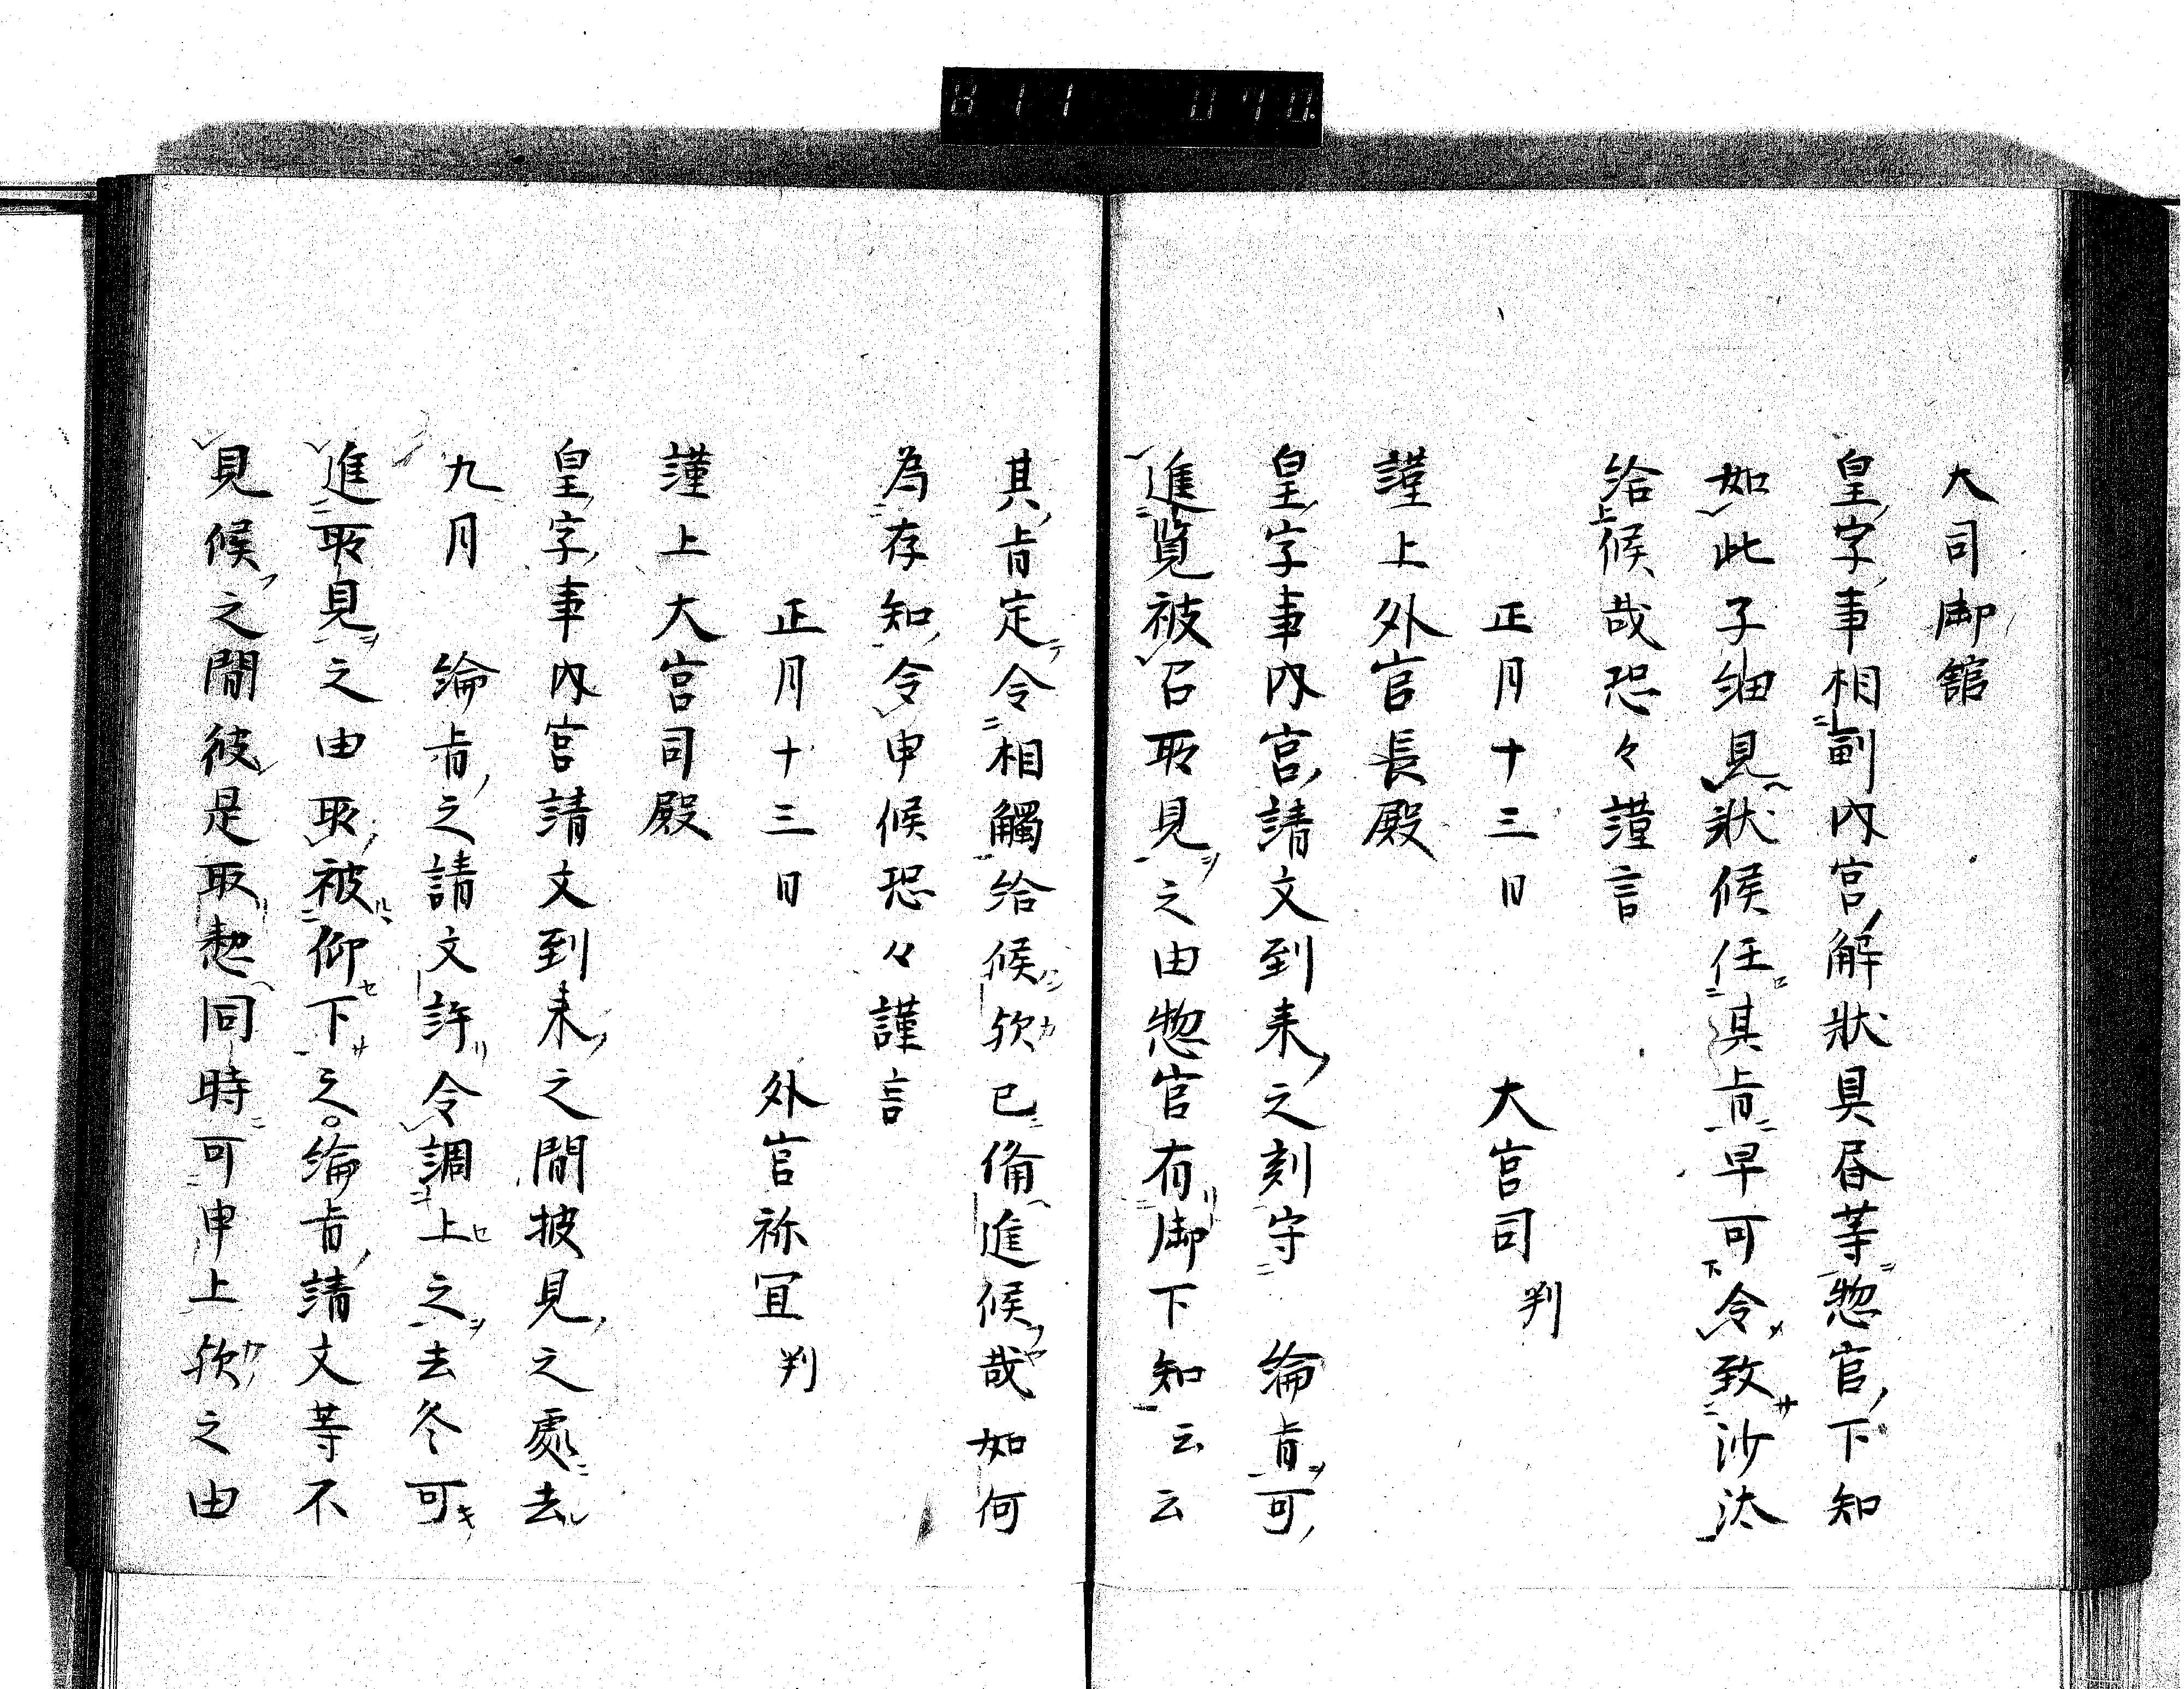 大司御館
皇字事相副内宮解狀具昏等惣官下知
如此子細見狀候任其㫖早可令致沙汰
給候哉恐々謹言
正月十三日　大宮司判
謹上外宮長殿
皇字事内宮請文到来之刻守　綸㫖可
進覧被召取見之由惣官有御下知云云
其㫖定令相觸給候欤已備進候哉如何
為存知令申候恐々謹言
正月十三日　外宮祢宜判
謹上大宮司殿
皇字事内宮請文到来之間披見之處去
九月　綸㫖之請文許令調上之去冬可
進取見之由取被仰下之綸㫖請文等不
見候之間彼是取惣同時可申上欤之由